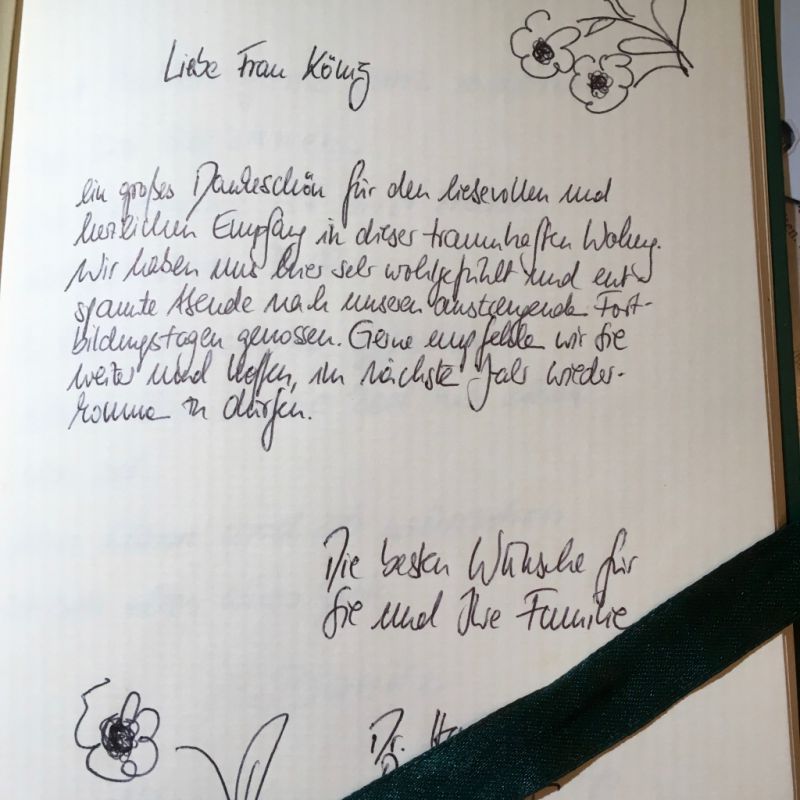 Liebe Frau König
ein großes Dankeschön für den liebevollen und
herzlichen Empfang in dieser traumhaften Wohung.
Wir haben uns hier sehr wohlgefühlt und ent-
spannte Abende nach unseren anstrengenden Fort-
bildungstagen genossen. Gerne empfehlen wir Sie
weiter und hoffen, im nächsten Jahr wieder-
kommen zu dürfen.
Die besten Wünsche für
Sie und Ihre Familie
Dr.